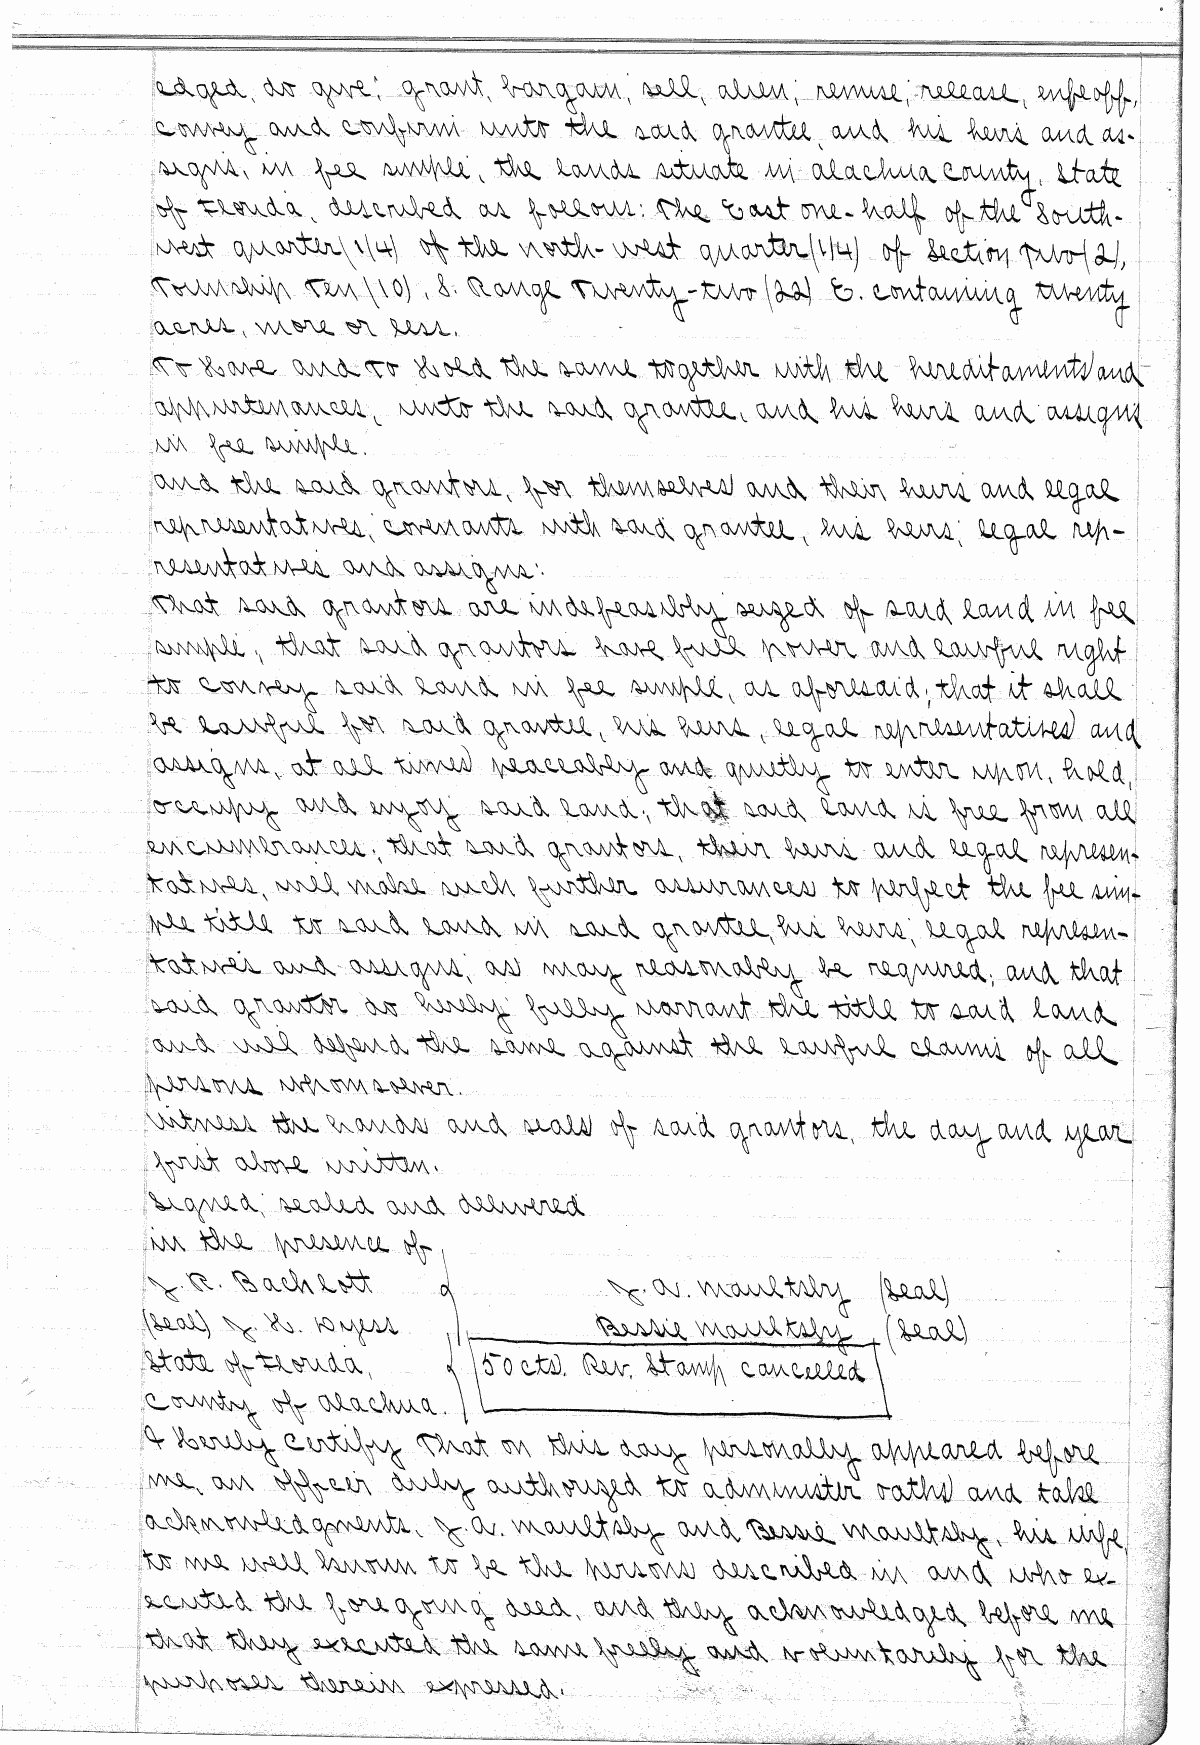 edged, do give, grant, bargain, sell, alien, remise, release, enfeoff,
convey and confirm unto the said grantee, and his heirs and as-
signs, in fee simple, the lands situate in Alachua County, State
of Florida, described as follows: The East one-half of the South-
west quarter (1/4) of the north-west quarter (1/4) of Section Two (2),
Township Ten (10), S. Range Twenty-two (22) E. containing twenty
acres, more or less.
To Have and To Hold the same together with the hereditaments and
appurtenances, unto the said grantee, and his heirs and assigns
in fee simple.
and the said grantors, for themselves and their heirs and legal
representatives, covenants with said grantee, his heirs, legal rep-
resentatives and assigns:
That said grantors are indefeasibly seized of said land in fee
simple; that said grantors have full power and lawful right
to convey said land in fee simple, as aforesaid; that it shall
be lawful for said grantee, his heirs, legal representatives and
assigns, at all times peaceably and quietly to enter upon, hold,
occupy and enjoy said land; that said land is free from all
encumbrances; that said grantors, their heirs and legal represen-
tatives, will make such further assurances to perfect the fee sim-
ple title to said land in said grantee, his heirs, legal represen-
tatives and assigns, as may reasonably be required; and that
said grantor do hereby fully warrant the title to said land
and will defend the same against the lawful claims of all
persons whomsoever.
Witness the hands and seals of said grantors, the day and year
first above written.
Signed, sealed and delivered
in the presence of
J. R. Bachlott J. A. Maultsby (Seal)
(Seal) J. H. Dyess Bessie Maultsby (Seal)
State of Florida, 50 cts. Rev. Stamp cancelled
County of Alachua.
I Hereby Certify That on this day personally appeared before
me, an officer duly authorized to administer oaths and take
acknowledgments, J. A. Maultsby and Bessie Maultsby, his wife,
to me well known to be the persons described in and who ex-
ecuted the foregoing deed, and they acknowledged before me
that they executed the same freely and voluntarily for the
purposes therein expressed.